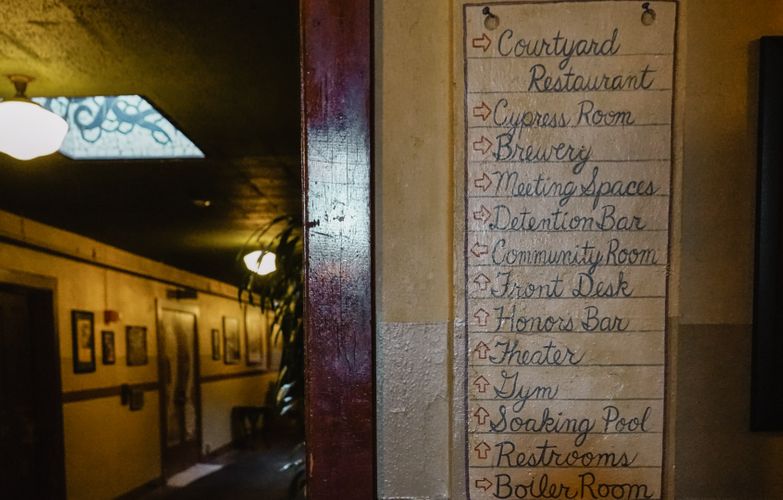 ⇨ Courtyard
Restaurant
⇨ Cypress Room
⇨ Brewery
⇨ Meeting Spaces
⇨ Detention Bar
⇦ Community Room
⇧ Front Desk
⇧ Honors Bar
⇧ Theater
⇧ Gym
⇧ Soaking Pool
⇧ Restrooms
⇨ Boiler Room